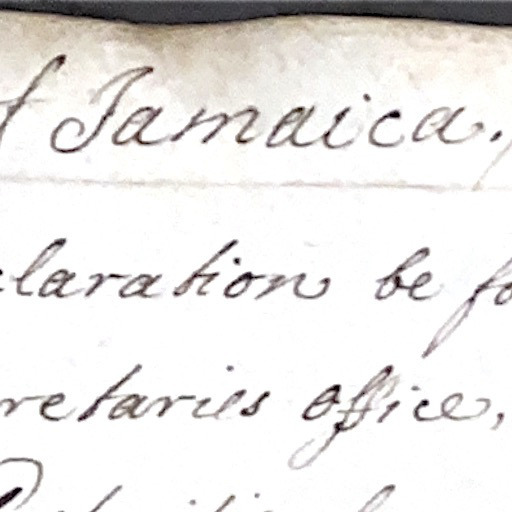 f Jamaica.
claration be fo
retaries office,